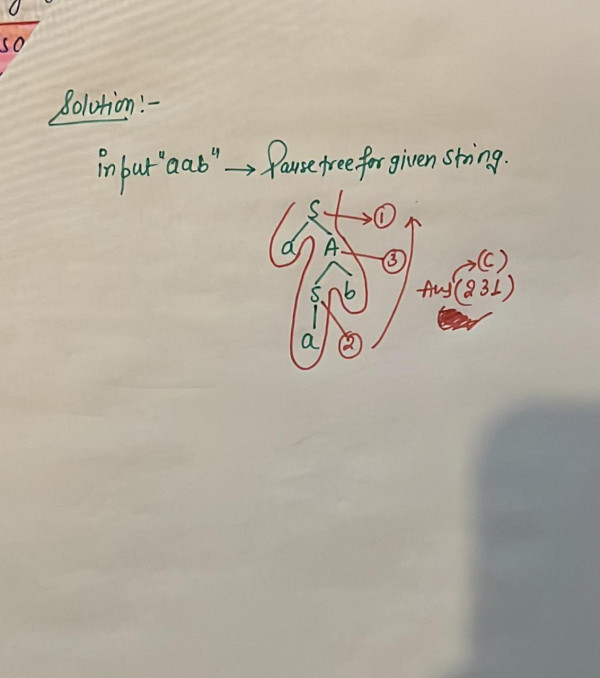 so
Solution:-
input "aab" → Pausetree for given string.
S → ①
a A ③
(C)
S b Ans (231)
a ②